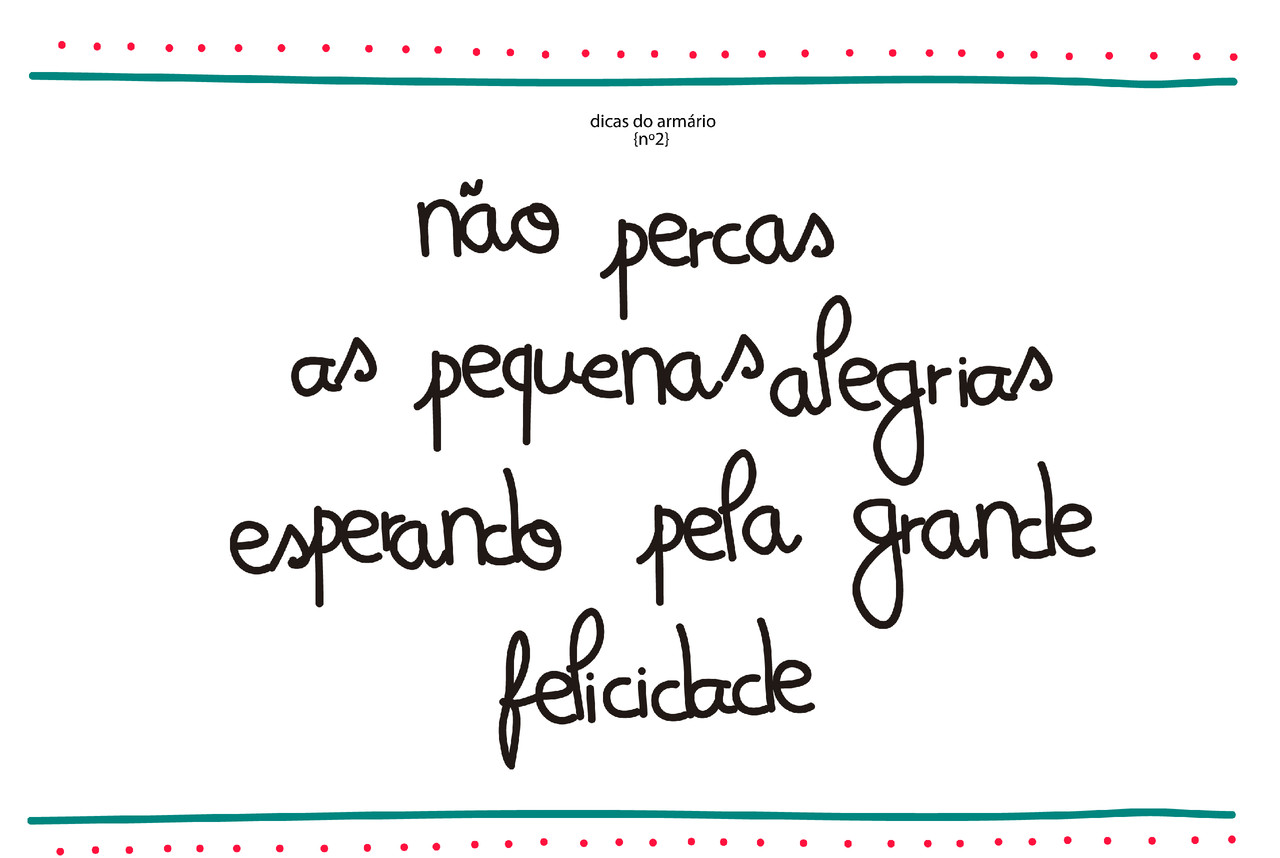 dicas do armário
{nº2}
não percas
as pequenas alegrias
esperando pela grande
felicidade